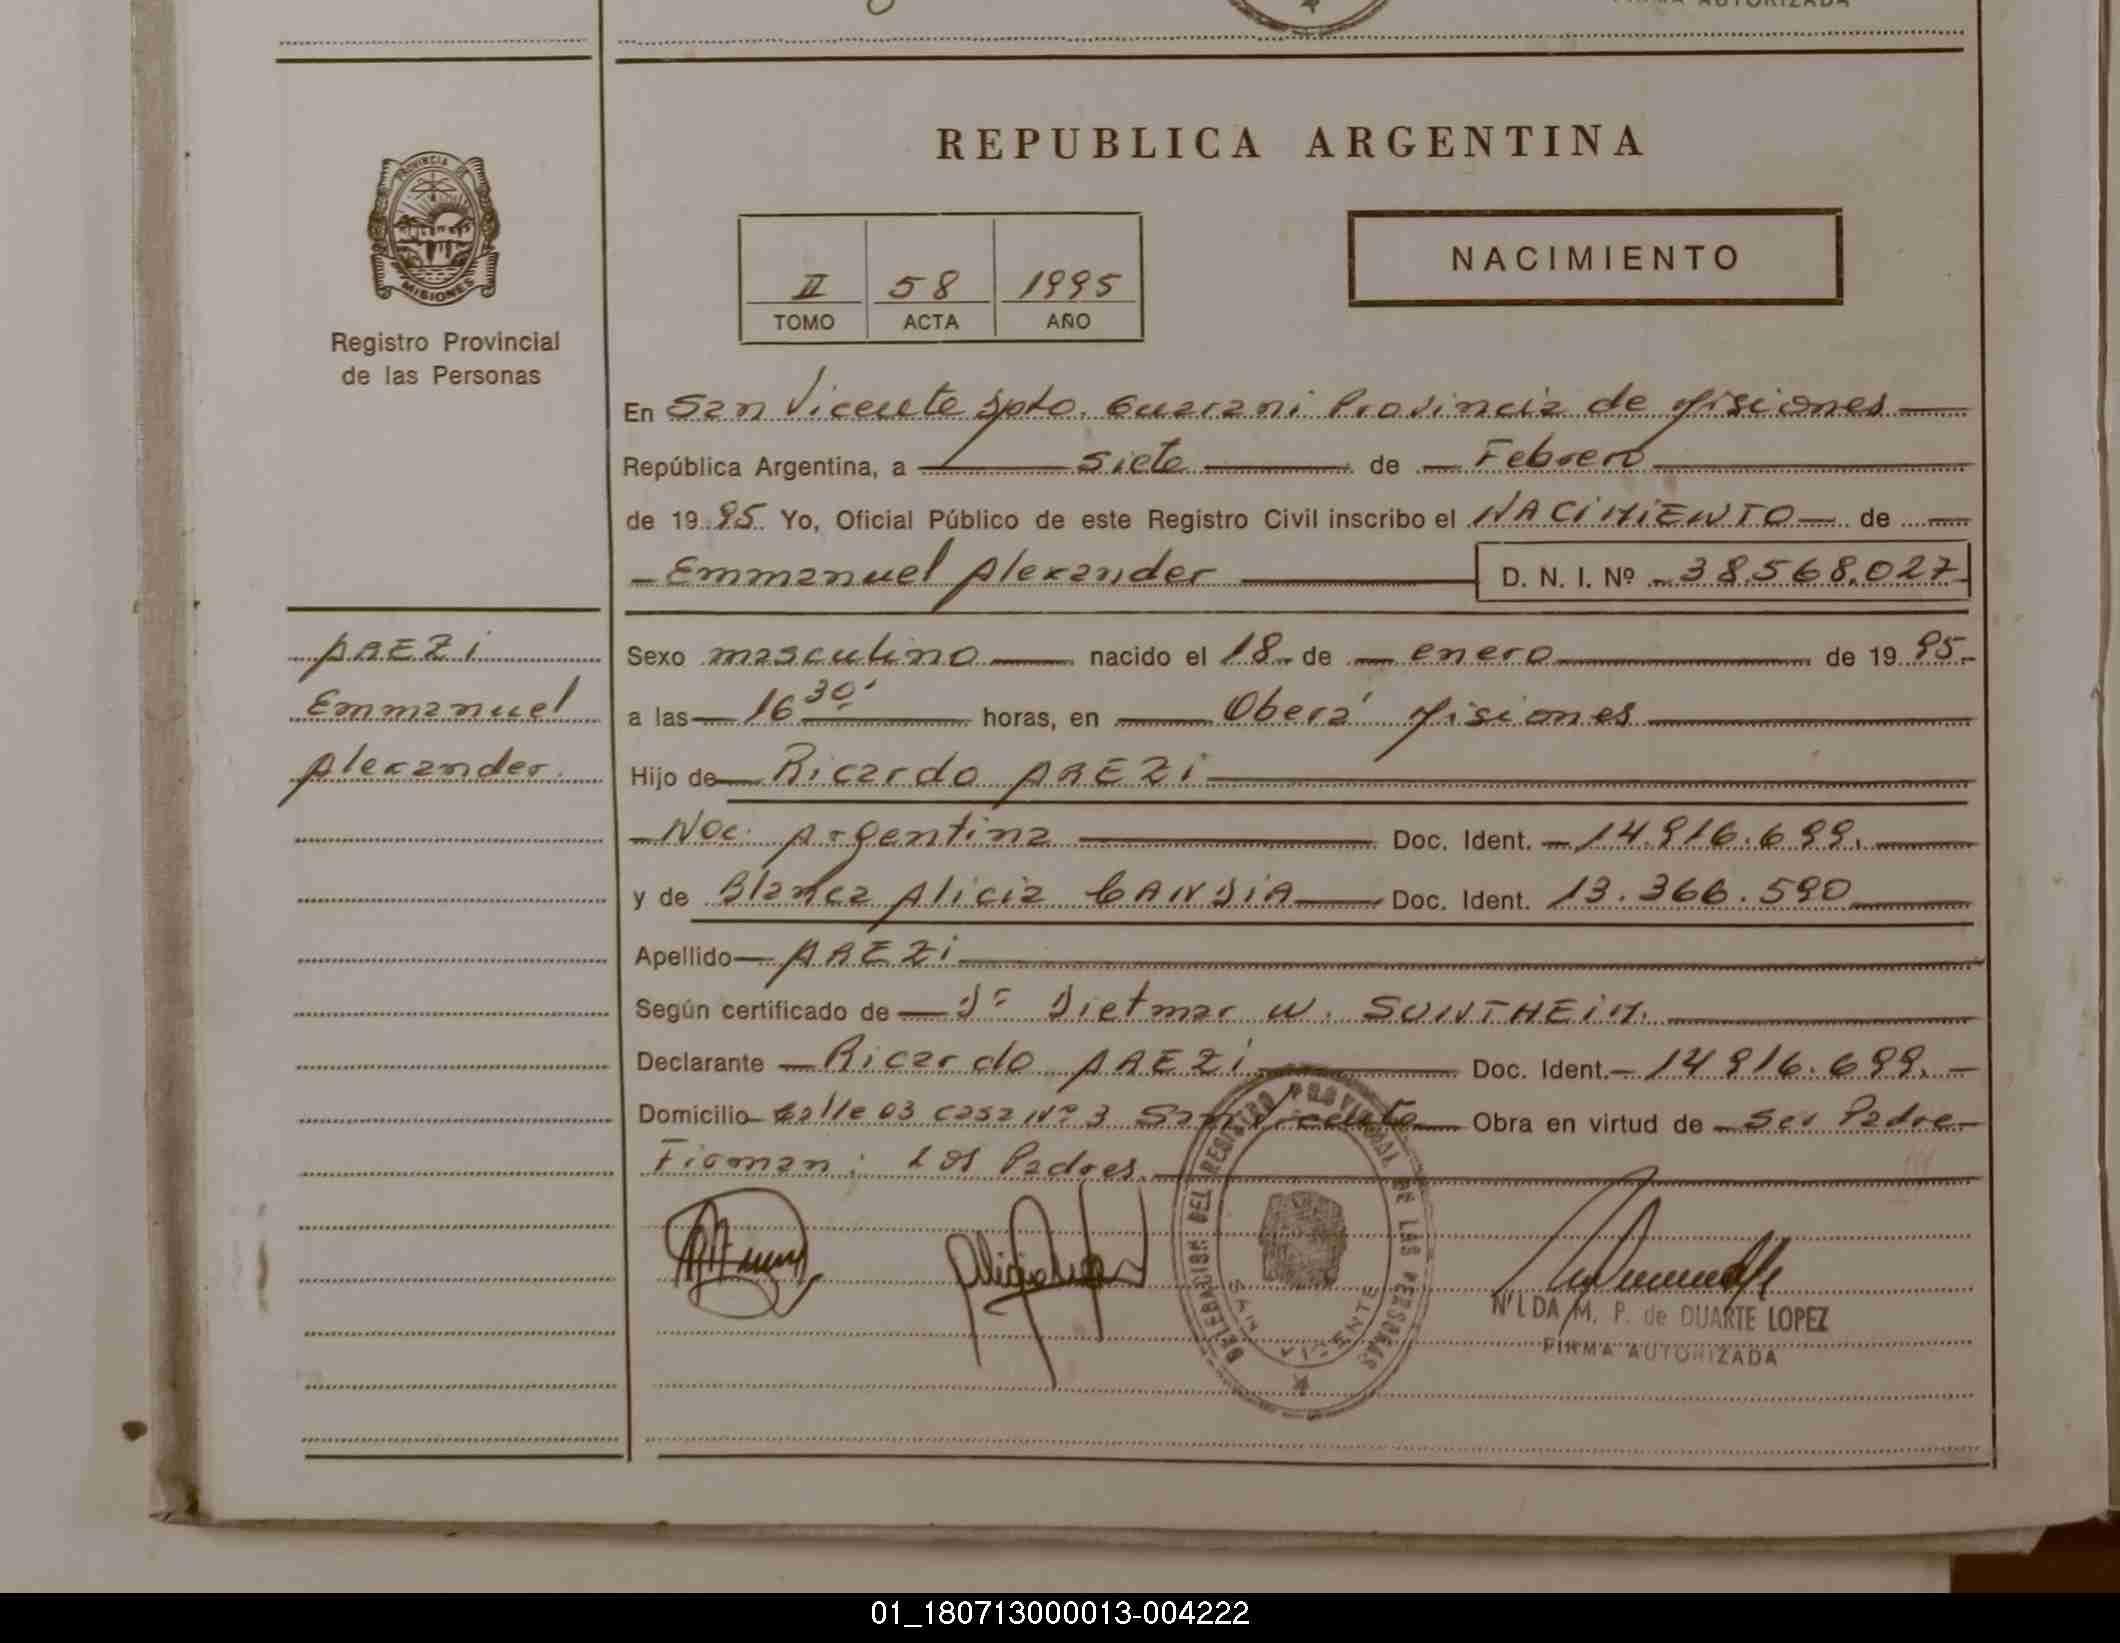 REPUBLICA ARGENTINA
PROVINCIA DE
MISIONES
Registro Provincial
de las Personas
II 58 1995
TOMO ACTA AÑO
NACIMIENTO
En San Vicente Dpto. Guarani Provincia de Misiones
República Argentina, a siete de Febrero
de 1995 Yo, Oficial Público de este Registro Civil inscribo el NACIMIENTO de
Emmanuel Alexander D. N. I. Nº 38.568.027
AREZI
Emmanuel
Alexander.
Sexo masculino nacido el 18 de enero de 1995.
a las 16 30' horas, en Oberá Misiones
Hijo de Ricardo AREZI
Nac. Argentina Doc. Ident. 14.916.699.
y de Blanca Alicia CANDIA Doc. Ident. 13.366.590
Apellido AREZI
Según certificado de Dr Dietmar W. SUNTHEIM.
Declarante Ricardo AREZI Doc. Ident. 14916.699.
Domicilio Calle 03 casa Nº 3 San Vicente Obra en virtud de ser Padre
Firman: Los Padres.
DELEGACION DEL REGISTRO PROVINCIAL DE LAS PERSONAS
SAN VICENTE
NILDA M. P. de DUARTE LOPEZ
FIRMA AUTORIZADA
01_180713000013-004222